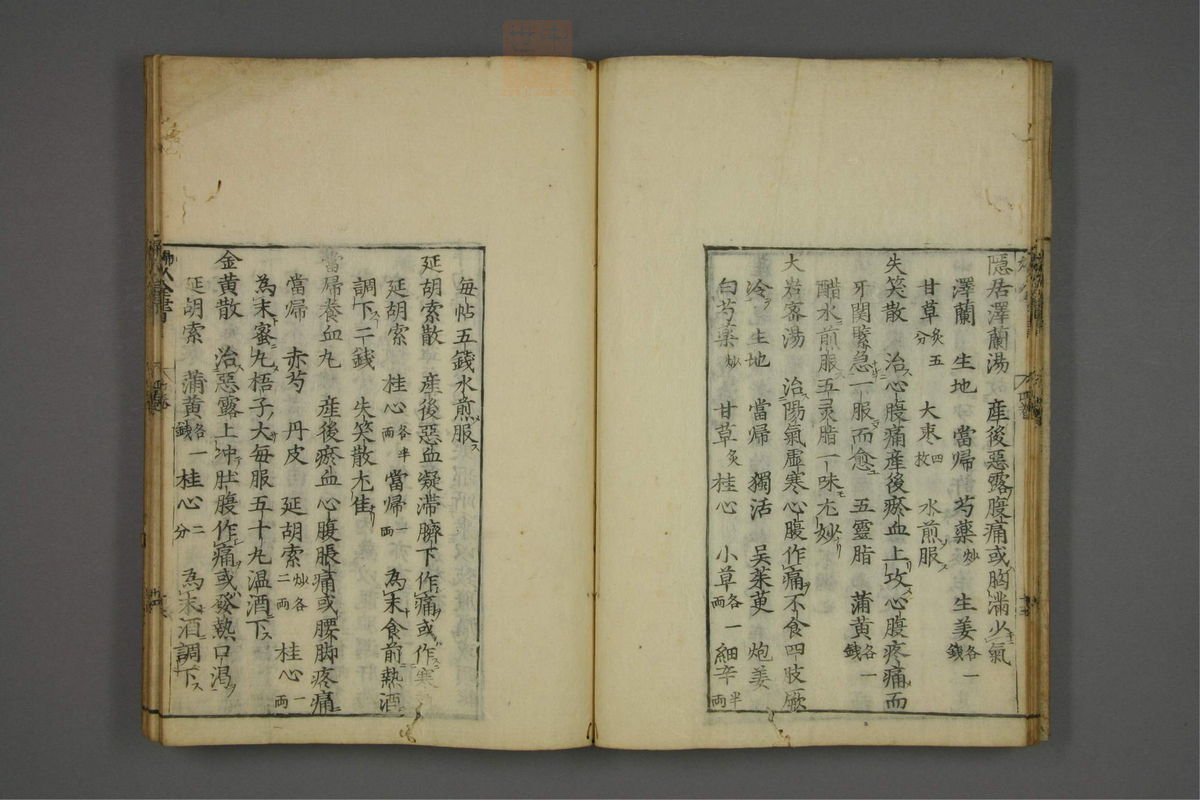 隠居澤蘭湯 産後惡露腹痛或胸滿少氣
澤蘭 生地 當帰 芍藥炒 生姜各一錢
甘草炙五分 大枣四枚 水煎服ス
失笑散 治心腹痛産後瘀血上攻心腹疼痛而
牙関緊急一服而愈 五靈脂 蒲黄各一錢
醋水煎服五灵脂一味尤妙
大岩蜜湯 治陽氣虛寒心腹作痛不食四肢厥
冷 生地 當帰 獨活 吴茱萸 炮姜
白芍藥炒 甘草炙 桂心 小草各一両 細辛半両
毎帖五錢水煎服ス
延胡索散 産後惡血凝滞臍下作痛或作寒
延胡索 桂心各半両 當帰一両 為末食前熱酒
調下二錢 失笑散尤佳
當帰養血丸 産後瘀血心腹脹痛或腰脚疼痛
當帰 赤芍 丹皮 延胡索炒各二両 桂心一両
為末蜜丸梧子大毎服五十丸温酒下ス
金黄散 治惡露上冲肚腹作痛或發熱口渇
延胡索 蒲黄各一錢 桂心二分 為末酒調下ス